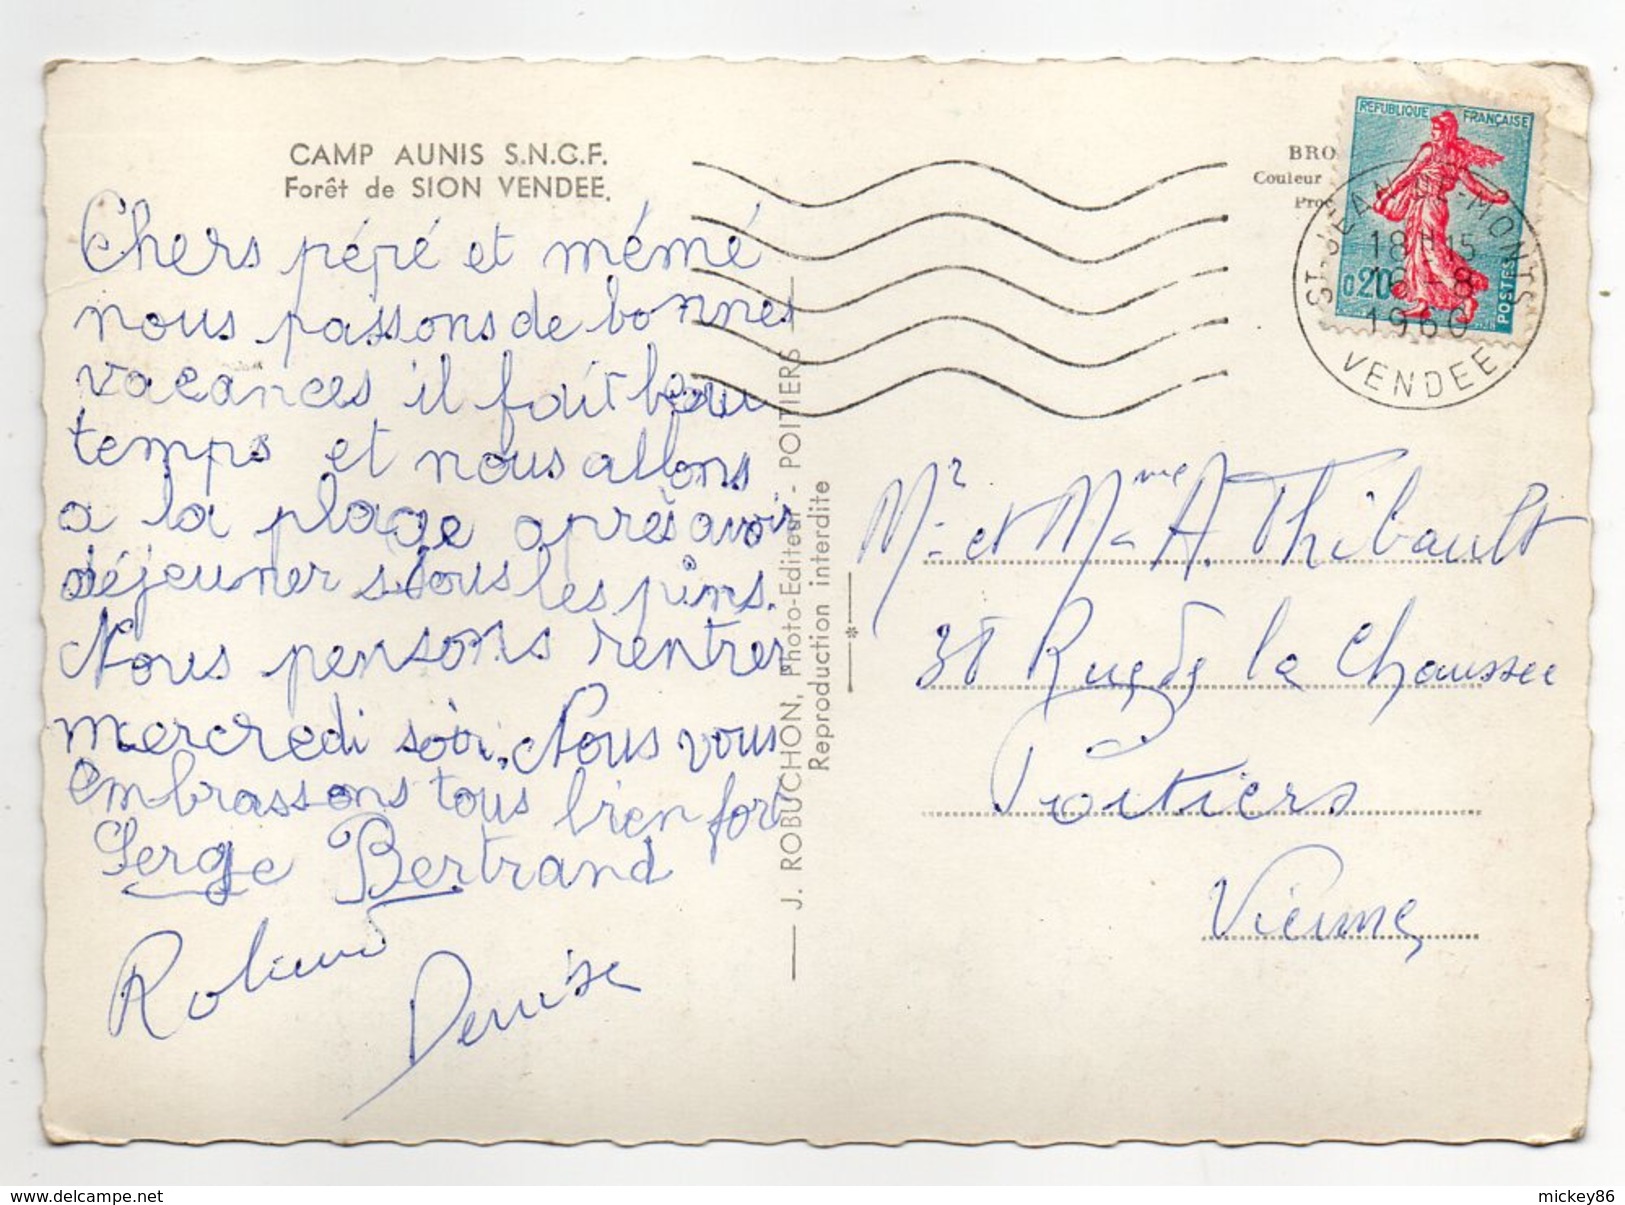 CAMP AUNIS S.N.C.F.
Forêt de SION VENDEE.
Chers pépé et mémé
nous passons de bonnes
vacances il fait beau
temps et nous allons
a la plage après avoir
déjeuner sous les pins.
Nous pensons rentrer
mercredi soir. Nous vous
embrassons tous bien fort
Serge Bertrand
Roland
Denise
J. ROBUCHON, Photo-Editeur - POITIERS
Reproduction interdite
BRO
Couleur
Proc
REPUBLIQUE FRANÇAISE
0,20
POSTES
ST-JEAN-DE-MONTS
18 15
-8
1960
VENDEE
Mr et Mme A. Thibault
Rue de la Chaussee
Poitiers
Vienne
delcampe.net
mickey86